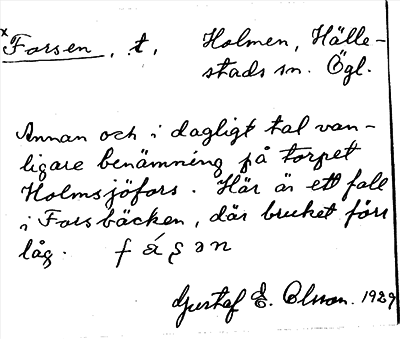 ×Forsen, t. Holmen, Hälle-
stads sn. Ögl.
Annan och i dagligt tal van-
ligare benämning på torpet
Holmsjöfors. Här är ett fall
i Forsbäcken, där bruket förr
låg. fáşən
Gustaf E. Olsson. 1929